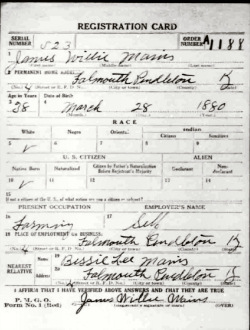 REGISTRATION CARD
SERIAL NUMBER 523 ORDER NUMBER A1188
1 James Willie Mains
(First name) (Middle name) (Last name)
2 PERMANENT HOME ADDRESS:
4 Falmouth Pendleton K
(No.) (Street or R. F. D. No.) (City or town) (County) (State)
Age in Years Date of Birth
3 38 4 March 28 1880
(Month.) (Day.) (Year.)
RACE
White Negro Oriental Indian
Citizen Noncitizen
5 ✓ 6 7 8 9
U. S. CITIZEN ALIEN
Native Born Naturalized Citizen by Father's Naturalization Before Registrant's Majority Declarant Non-declarant
10 ✓ 11 12 13 14
15 If not a citizen of the U. S., of what nation are you a citizen or subject?
PRESENT OCCUPATION EMPLOYER'S NAME
16 Farming 17 Self
18 PLACE OF EMPLOYMENT OR BUSINESS:
4 Falmouth Pendleton K
(No.) (Street or R. F. D. No.) (City or town) (County) (State)
NEAREST RELATIVE
Name 19 Bessie Lee Mains
Address 20 4 Falmouth Pendleton K
(No.) (Street or R. F. D. No.) (City or town) (County) (State)
I AFFIRM THAT I HAVE VERIFIED ABOVE ANSWERS AND THAT THEY ARE TRUE
P. M. G. O.
Form No. 1 (Red) James Willie Mains
(OVER)